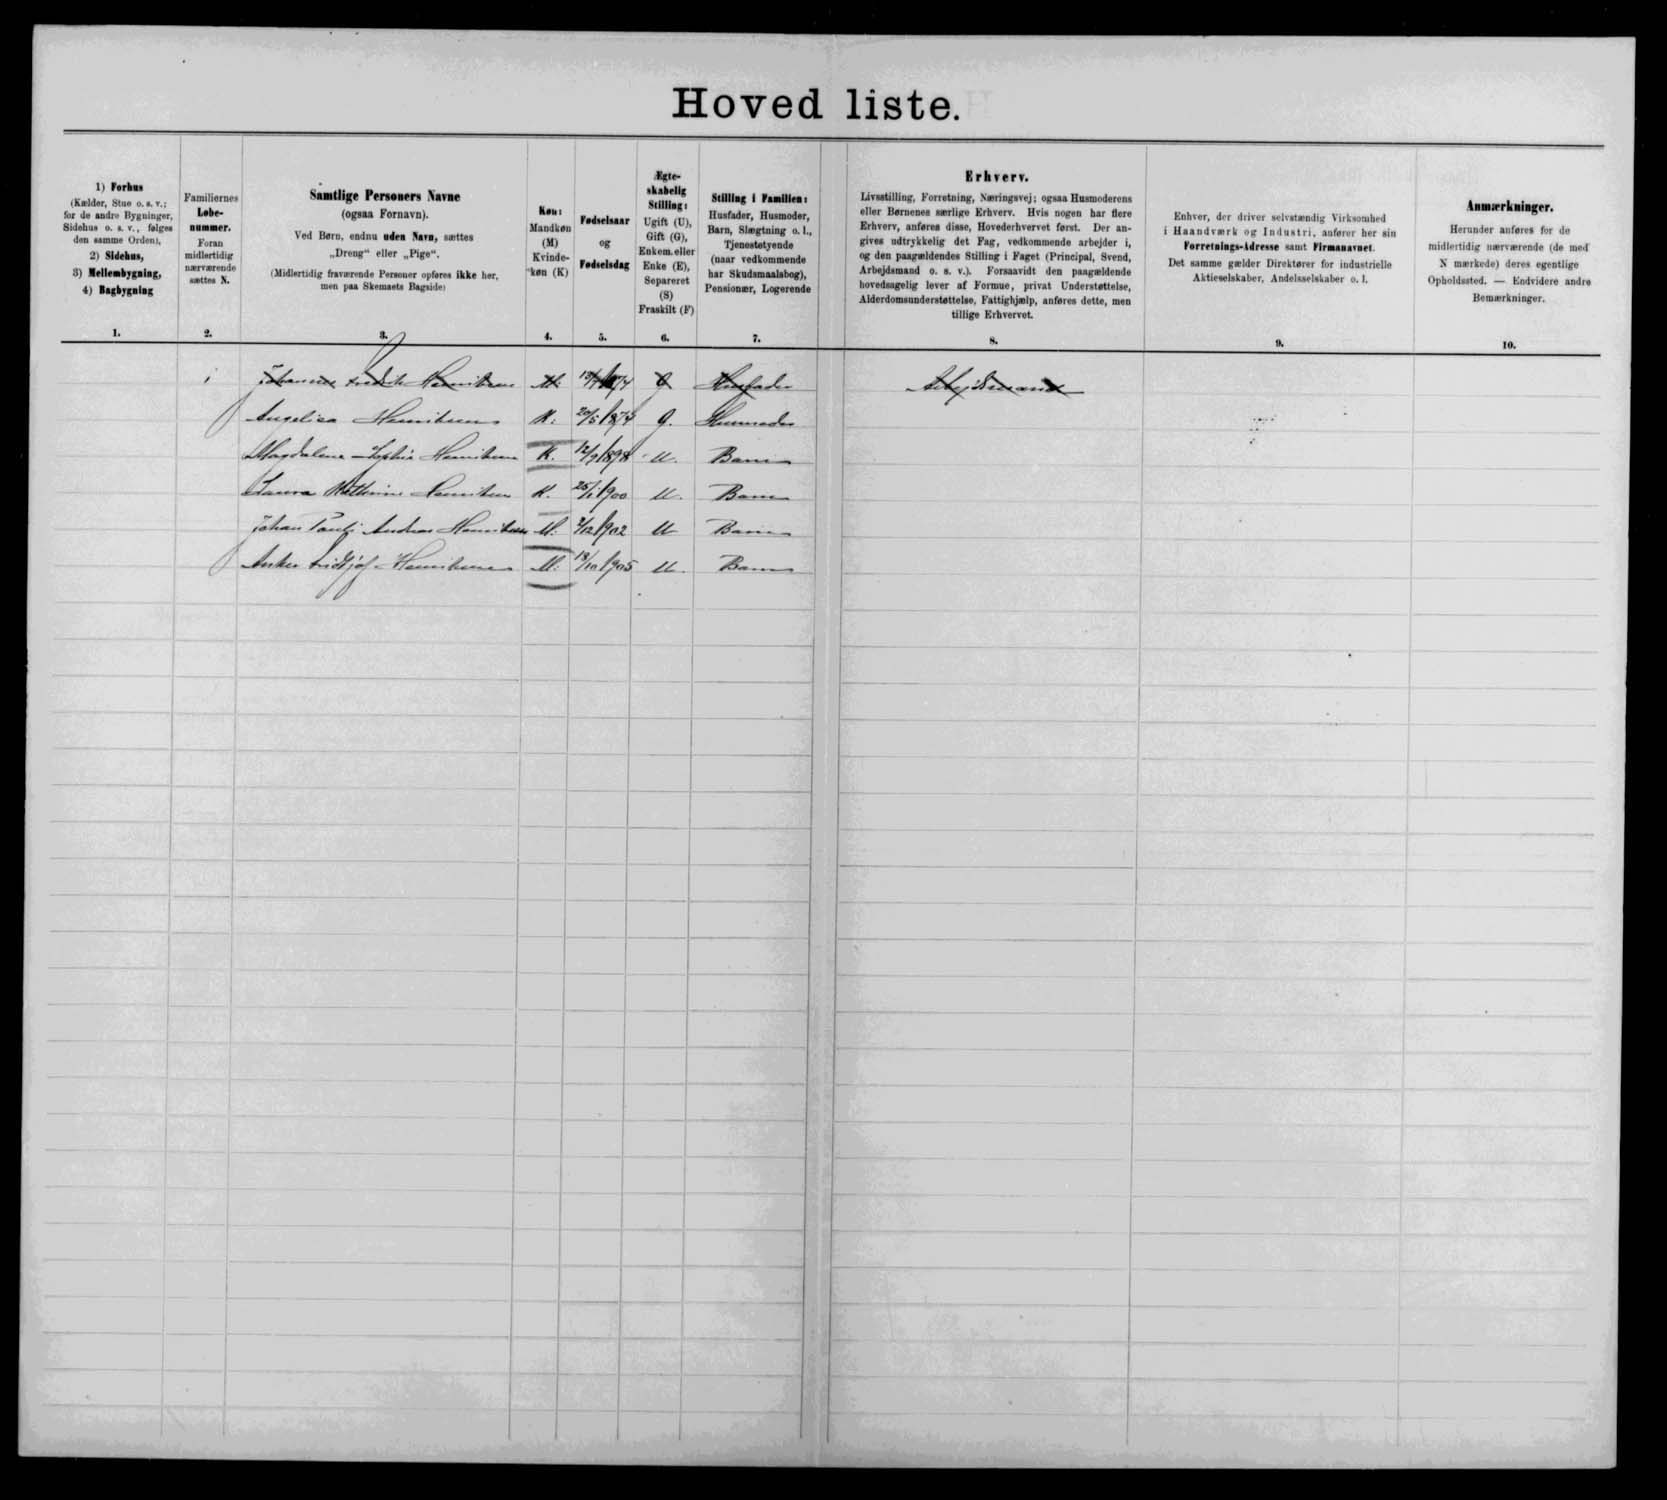 Hoved liste.
1) Forhus
(Kælder, Stue o. s. v.;
for de andre Bygninger,
Sidehus o. s. v., følges
den samme Orden),
2) Sidehus,
3) Mellembygning,
4) Bagbygning
1.
Familiernes
Løbe-
nummer.
Foran
midlertidig
nærværende
sættes N.
2.
Samtlige Personers Navne
(ogsaa Fornavn).
Ved Børn, endnu uden Navn, sættes
„Dreng“ eller „Pige“.
(Midlertidig fraværende Personer opføres ikke her,
men paa Skemaets Bagside)
3.
Køn:
Mandkøn
(M)
Kvinde-
køn (K)
4.
Fødselsaar
og
Fødselsdag
5.
Ægte-
skabelig
Stilling:
Ugift (U),
Gift (G),
Enkem. eller
Enke (E),
Separeret
(S)
Fraskilt (F)
6.
Stilling i Familien:
Husfader, Husmoder,
Barn, Slægtning o. l.,
Tjenestetyende
(naar vedkommende
har Skudsmaalsbog),
Pensionær, Logerende
7.
Erhverv.
Livsstilling, Forretning, Næringsvej; ogsaa Husmoderens
eller Børnenes særlige Erhverv. Hvis nogen har flere
Erhverv, anføres disse, Hovederhvervet først. Der an-
gives udtrykkelig det Fag, vedkommende arbejder i,
og den paagældendes Stilling i Faget (Principal, Svend,
Arbejdsmand o. s. v.). Forsaavidt den paagældende
hovedsagelig lever af Formue, privat Understøttelse,
Alderdomsunderstøttelse, Fattighjælp, anføres dette, men
tillige Erhvervet.
8.
Enhver, der driver selvstændig Virksomhed
i Haandværk og Industri, anfører her sin
Forretnings-Adresse samt Firmanavnet.
Det samme gælder Direktører for industrielle
Aktieselskaber, Andelsselskaber o. l.
9.
Anmærkninger.
Herunder anføres for de
midlertidig nærværende (de med
N mærkede) deres egentlige
Opholdssted. — Endvidere andre
Bemærkninger.
10.
1 Johannes Fredrik Henriksen M. G Husfader Arbejdsmand
Angelica Henriksen K. 20/5 1874 G. Husmoder
Magdalene Sophie Henriksen K. 12/9 1898 U. Barn
Laura Kathrine Henriksen K. 25/1 1900 U. Barn
Johan Andreas Henriksen M. 2/12 1902 U Barn
Anker Fridtjof Henriksen M. 18/10 1905 U. Barn